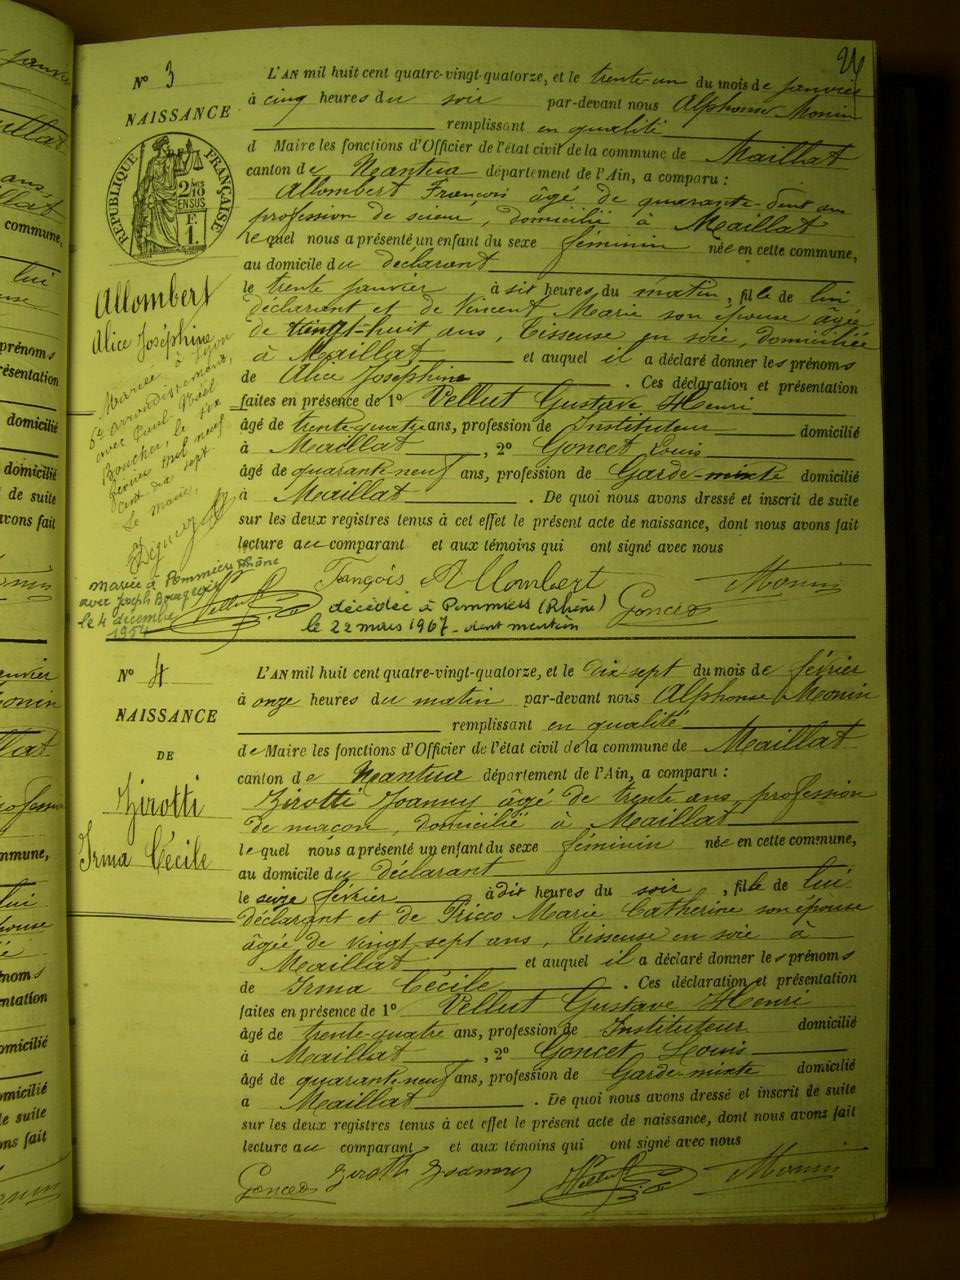 26
N° 3
NAISSANCE
RÉPUBLIQUE FRANÇAISE
Allombert
Alice Joséphine
Mariée à Lyon
arrondissement,
avec Paul Noël
Boucher le six
février mil neuf
cent dix sept
Le maire,
mariée à Pommiers Rhône
avec Joseph Bourgeois
le 4 décembre
1954
L'AN mil huit cent quatre-vingt-quatorze, et le trente-un du mois de janvier
à cinq heures du soir par-devant nous Alphonse Monin
remplissant en qualité
d Maire les fonctions d'Officier de l'état civil de la commune de Maillat
canton de Nantua département de l'Ain, a comparu :
Allombert François âgé de quarante-sept ans
profession de scieur, domicilié à Maillat
lequel nous a présenté un enfant du sexe féminin née en cette commune,
au domicile du déclarant
le trente janvier à six heures du matin, fille de lui
déclarant et de Vincent Marie son épouse âgée
de vingt-huit ans, Tisseuse en soie, domiciliée
à Maillat et auquel il a déclaré donner les prénoms
de Alice Joséphine . Ces déclaration et présentation
faites en présence de 1° Vellut Gustave Henri
âgé de trente-quatre ans, profession de Instituteur domicilié
à Maillat, 2° Goncet Louis
âgé de quarante-neuf ans, profession de Garde-mixte domicilié
à Maillat . De quoi nous avons dressé et inscrit de suite
sur les deux registres tenus à cet effet le présent acte de naissance, dont nous avons fait
lecture au comparant et aux témoins qui ont signé avec nous
François Allombert Monin
Vellut Goncet
décédée à Pommiers (Rhône)
le 22 mars 1967 - dont mention
N° 4
NAISSANCE
DE
Zirotti
Irma Cécile
L'AN mil huit cent quatre-vingt-quatorze, et le dix-sept du mois de février
à onze heures du matin par-devant nous Alphonse Monin
remplissant en qualité
de Maire les fonctions d'Officier de l'état civil de la commune de Maillat
canton de Nantua département de l'Ain, a comparu :
Zirotti Joanny âgé de trente ans, profession
de maçon, domicilié à Maillat
lequel nous a présenté un enfant du sexe féminin née en cette commune,
au domicile du déclarant
le seize février à dix heures du soir, fille de lui
déclarant et de Ricco Marie Catherine son épouse
âgée de vingt-sept ans, Tisseuse en soie à
Maillat et auquel il a déclaré donner les prénoms
de Irma Cécile . Ces déclaration et présentation
faites en présence de 1° Vellut Gustave Henri
âgé de trente-quatre ans, profession de Instituteur domicilié
à Maillat, 2° Goncet Louis
âgé de quarante-neuf ans, profession de Garde-mixte domicilié
a Maillat . De quoi nous avons dressé et inscrit de suite
sur les deux registres tenus à cet effet le présent acte de naissance, dont nous avons fait
lecture au comparant et aux témoins qui ont signé avec nous
Goncet Zirotti Joanny Vellut Monin